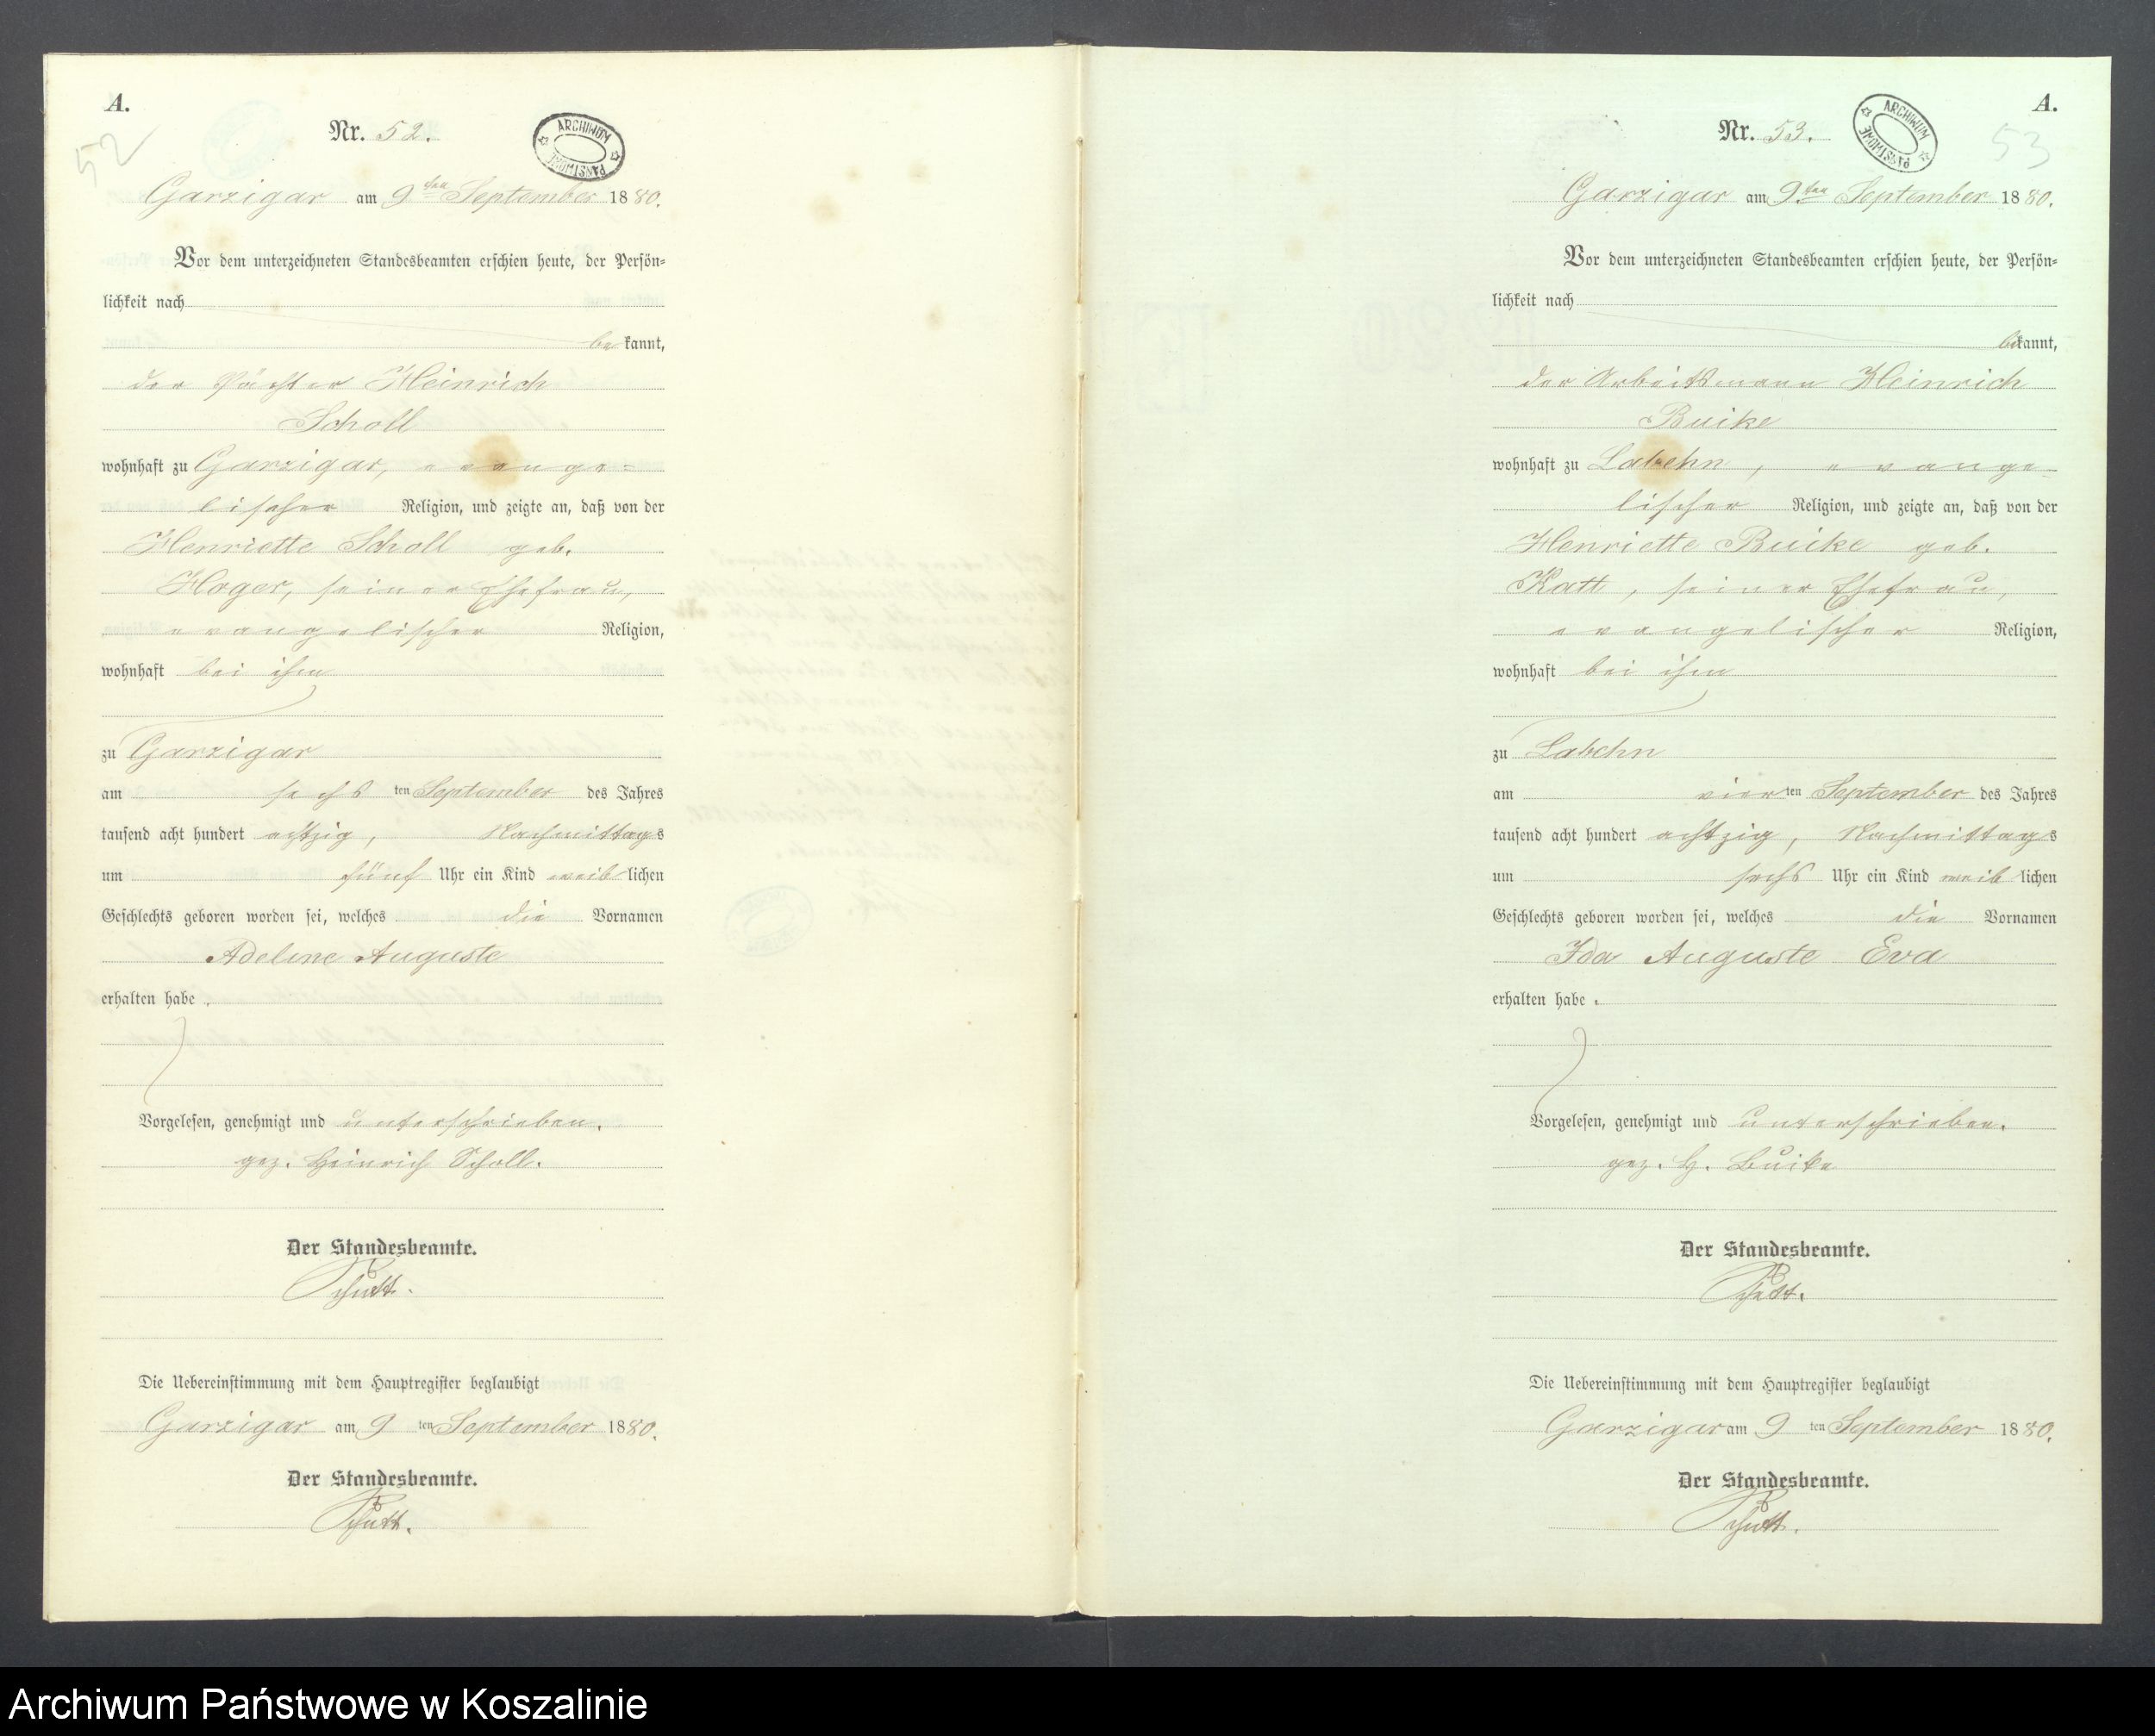 A.
52
Nr. 52.
ARCHIWUM PAŃSTWOWE
Garzigar am 9ten September 1880.
Vor dem unterzeichneten Standesbeamten erschien heute, der Persön-
lichkeit nach
bekannt,
der Pächter Heinrich
Scholl
wohnhaft zu Garzigar, evange-
lischer Religion, und zeigte an, daß von der
Henriette Scholl geb.
Hoger, seiner Ehefrau,
evangelischer Religion,
wohnhaft bei ihm
zu Garzigar
am sechs ten September des Jahres
tausend acht hundert achtzig, Nachmittags
um fünf Uhr ein Kind weiblichen
Geschlechts geboren worden sei, welches die Vornamen
Adeline Auguste
erhalten habe.
Vorgelesen, genehmigt und unterschrieben.
gez. Heinrich Scholl.
Der Standesbeamte.
Die Uebereinstimmung mit dem Hauptregister beglaubigt
Garzigar am 9 ten September 1880.
Der Standesbeamte.
A.
53
Nr. 53.
ARCHIWUM PAŃSTWOWE
Garzigar am 9ten September 1880.
Vor dem unterzeichneten Standesbeamten erschien heute, der Persön-
lichkeit nach
bekannt,
der Arbeitsmann Heinrich
Buike
wohnhaft zu Labehn, evange-
lischer Religion, und zeigte an, daß von der
Henriette Buike geb.
Katt, seiner Ehefrau,
evangelischer Religion,
wohnhaft bei ihm
zu Labehn
am vierten September des Jahres
tausend acht hundert achtzig, Nachmittags
um sechs Uhr ein Kind weiblichen
Geschlechts geboren worden sei, welches die Vornamen
Ida Auguste Eva
erhalten habe.
Vorgelesen, genehmigt und unterschrieben.
gez. H. Buike
Der Standesbeamte.
Die Uebereinstimmung mit dem Hauptregister beglaubigt
Garzigar am 9 ten September 1880.
Der Standesbeamte.
Archiwum Państwowe w Koszalinie